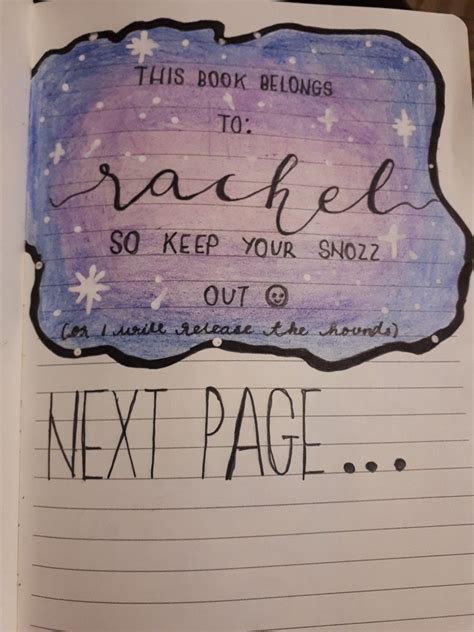 THIS BOOK BELONGS
TO:
rachel
SO KEEP YOUR SNOZZ
OUT
(or I will release the hounds)
NEXT PAGE...